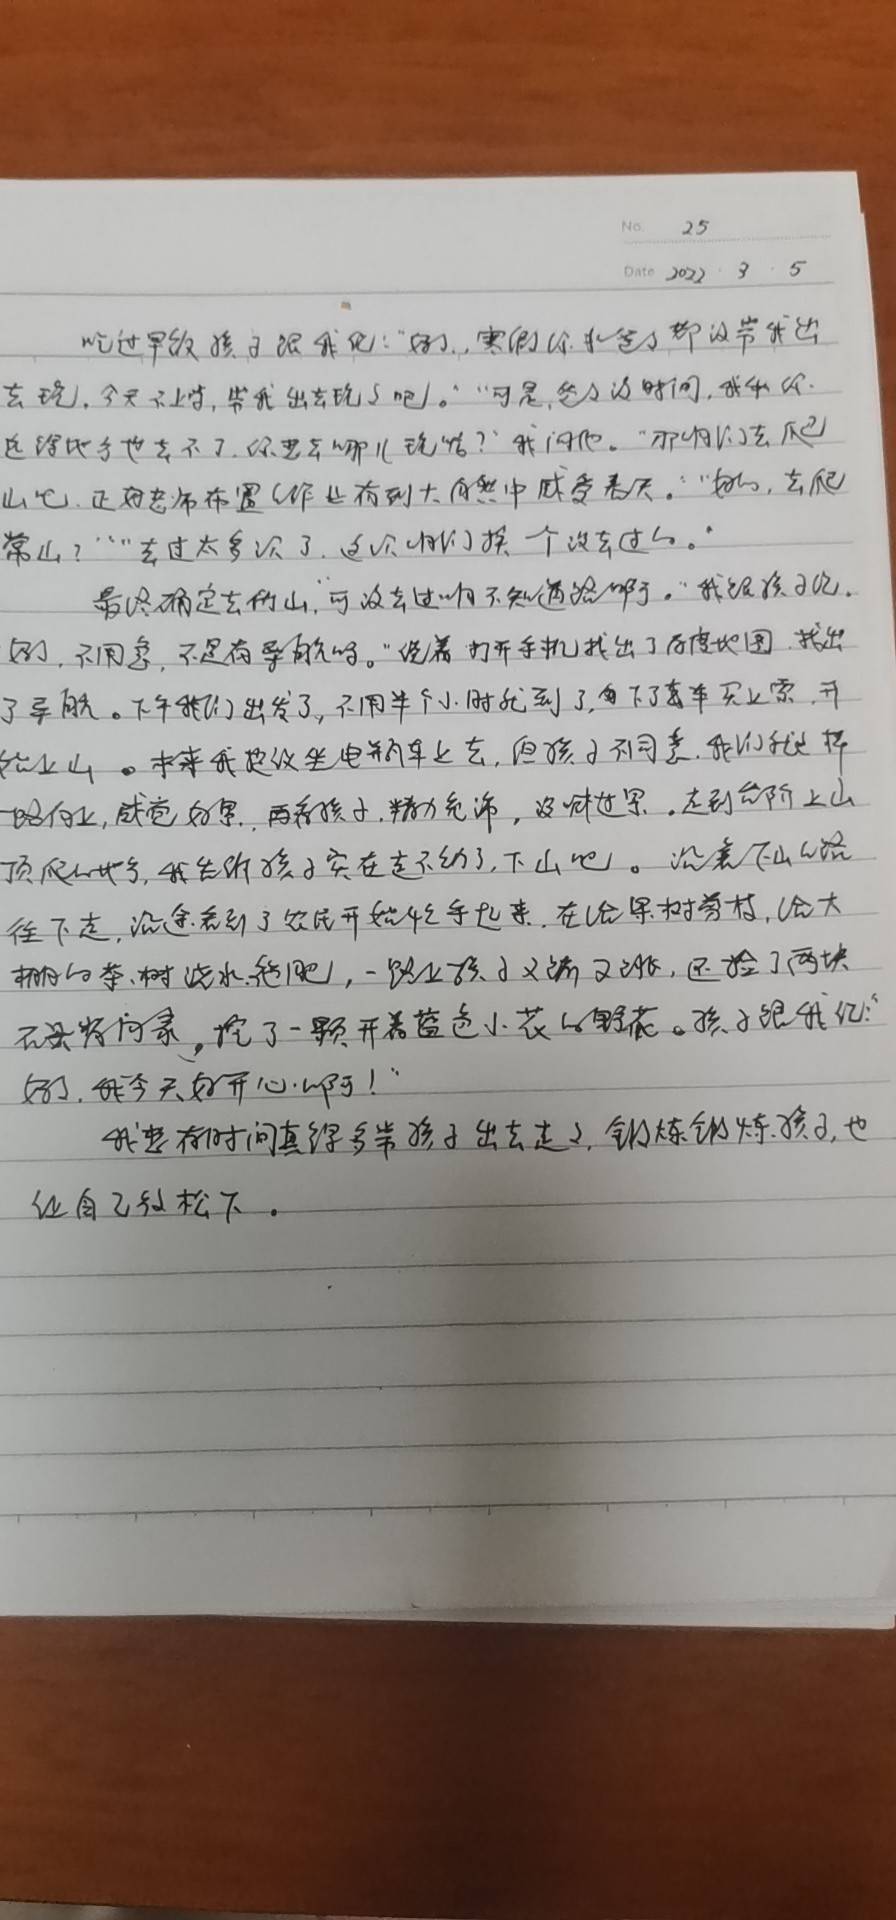 No. 25
Date 2022 · 3 · 5
吃过早饭孩子跟我说:“妈妈,寒假你和爸爸都没带我出
去玩,今天不上学,带我出去玩玩吧。”“可是,爸爸没时间,我和你
远得地方也去不了,你要去哪儿玩呀?”我问他。“那咱们去爬
山吧,正好老师布置作业有到大自然中感受春天。”“好的,去爬
常山?”“去过太多次了,这次咱们换一个没去过的。”
最终确定去的山,“可没去过咱不知道路啊。”我跟孩子说。
妈妈,不用急,不是有导航吗。”说着打开手机找出了百度地图,找出
了导航。下午我们出发了,不用半个小时就到了,下了车买上票,开
始上山。本来我提议坐电瓶车上去,但孩子不同意,我们就这样
一路向上,感觉好累,再看孩子,精力充沛,没啥世累。走到台阶上山
顶爬的地方,我告诉孩子实在走不动了,下山吧。沿着下山的路
往下走,沿途看到了农民开始忙乎起来,在给果树剪枝,给大
棚的枣树浇水、施肥,一路上孩子又蹦又跳,还捡了两块
石头,挖了一颗开着蓝色小花的野花。孩子跟我说:“
妈妈,我今天好开心啊!”
我想有时间真得多带孩子出去走走,锻炼锻炼孩子,也
让自己放松下。